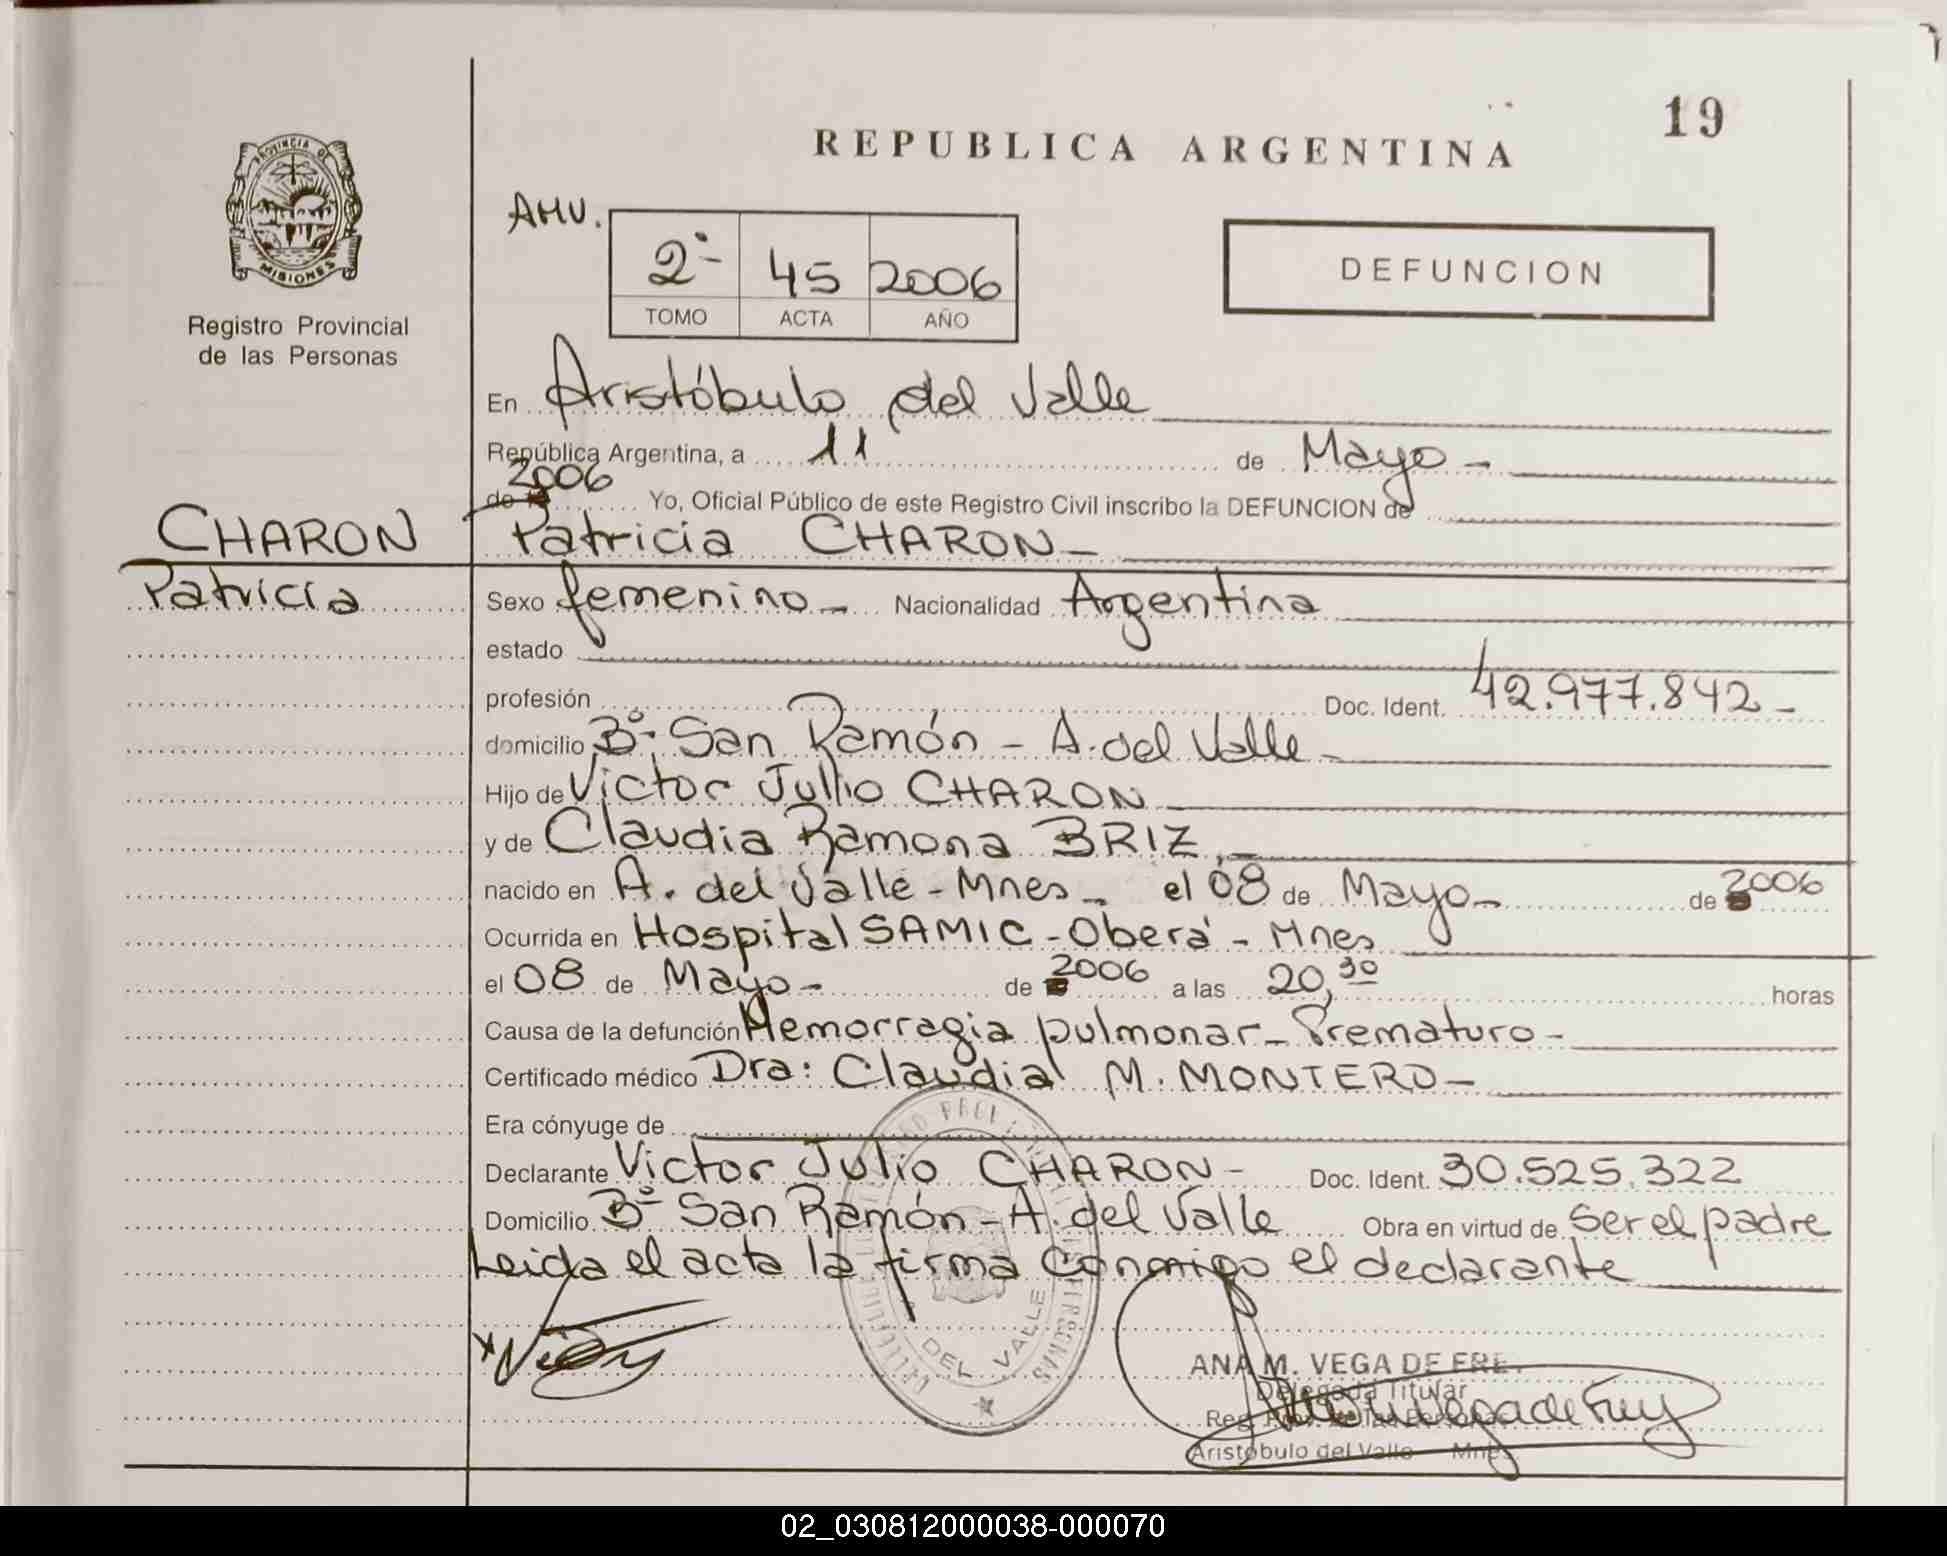 19
REPUBLICA ARGENTINA
PROVINCIA DE
MISIONES
Registro Provincial
de las Personas
AHV.
2º 45 2006
TOMO ACTA AÑO
DEFUNCION
En Aristóbulo del Valle
República Argentina, a 11 de Mayo -
de 2006 Yo, Oficial Público de este Registro Civil inscribo la DEFUNCION de
CHARON Patricia CHARON -
Patricia Sexo femenino - Nacionalidad Argentina
estado
profesión Doc. Ident. 42.977.842 -
domicilio Bº San Ramón - A. del Valle -
Hijo de Victor Julio CHARON
y de Claudia Ramona BRIZ -
nacido en A. del Valle - Mnes - el 08 de Mayo - de 2006
Ocurrida en Hospital SAMIC - Oberá - Mnes
el 08 de Mayo - de 2006 a las 20,30 horas
Causa de la defunción Hemorragia pulmonar - Prematuro -
Certificado médico Dra: Claudia M. MONTERO -
Era cónyuge de
Declarante Victor Julio CHARON - Doc. Ident. 30.525.322
Domicilio Bº San Ramón - A. del Valle Obra en virtud de ser el padre
Leida el acta la firma conmigo el declarante
DEL VALLE
ANA M. VEGA DE FRE
Delegada Titular
Reg. Prov. de las Personas
Aristóbulo del Valle Mnes.
02_030812000038-000070